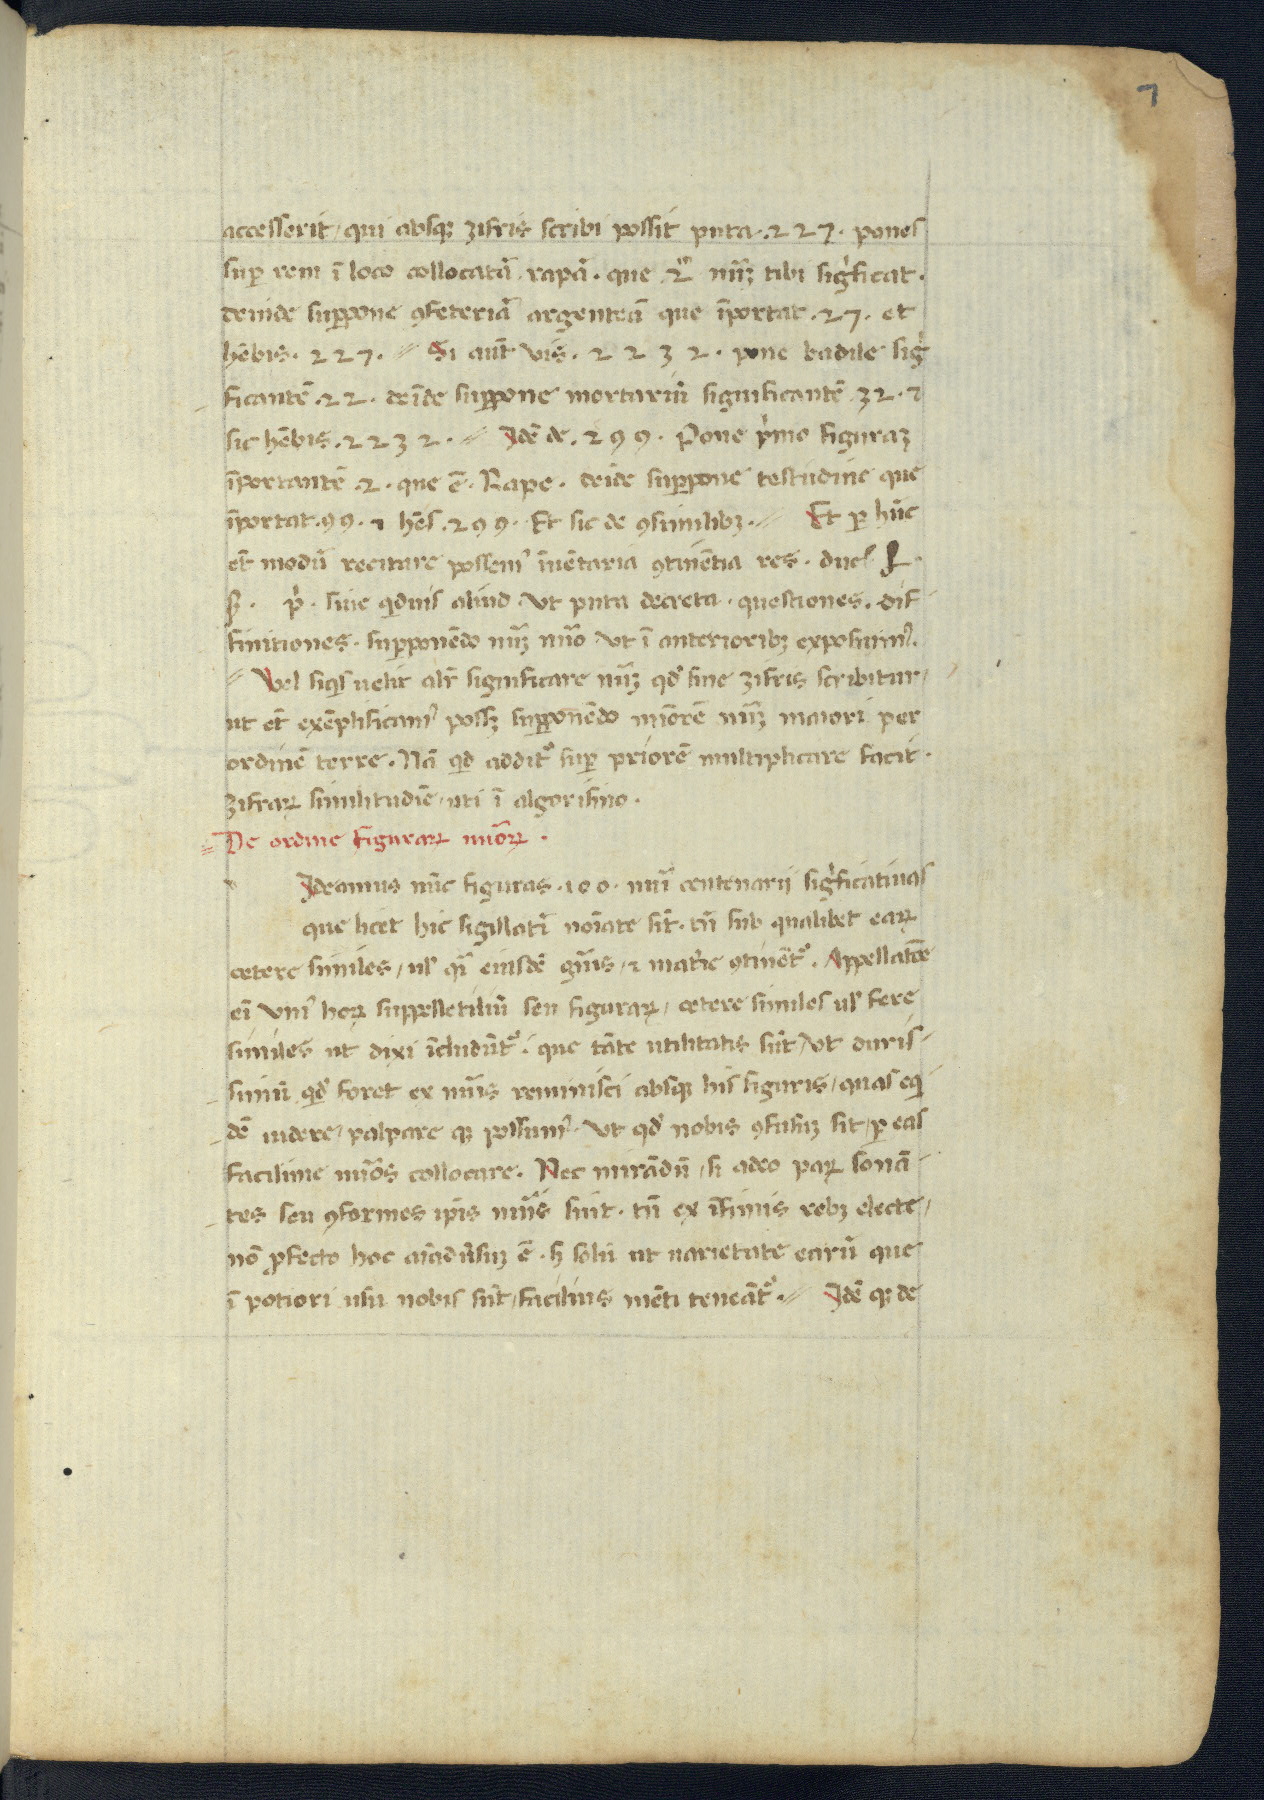 7
accesserit, qui absqȝ zifris scribi possit puta .227. pones
suꝑ rem ī loco collocatā rapā. que .2. nūȝ tibi sigͥficat.
deinde suppone ꝯfeteriā argenteā que īportat .27. et
hēbis. 227. Si aūt vis. 2232. pone badile sigͥ
ficantē .22. deīde suppone mortariū significantē 32. ⁊
sic hēbis .2232. Idē de .299. Pone pͥmo figuraȝ
īportantē .2. que ē. Rape. deīde suppone testudinē que
īportat .99. ⁊ hēs .299. Et sic de ꝯsimilibȝ. Et ꝑ hūc
et̄ modū recitare possemꝰ īuētaria ꝯtinētia res. duc̄
siue qͥduis aliud. Vt puta decreta. questiones. dif
finitiones. supponēdo nūȝ nūo vt ī anterioribȝ exposuimꝰ.
Vel siqͥs uelit alr̄ significare nūȝ qd̄ sine zifris scribitur,
ut et̄ exēplificauimꝰ possȝ supponēdo miorē nūȝ maiori per
ordinē terre. Nā qd̄ additᷣ suꝑ priorē multiplicare facit.
zifraꝝ similitudīe, uti ī algorismo.
De ordine figuraꝝ nūoꝝ.
Ideamus nūc figuras .100. nūi centenarij sigͥficatiuas
que licet hic sigillatī noīate sīt. tn̄ sub qualibet eaꝝ
cetere similes, ul̄ qͣi eiusdē gn̄is, ⁊ mat̄ie ꝯtinētᷣ. Appellatōe
eī vniꝰ hoꝝ suppelletiliū seu figuraꝝ, cetere similes ul̄ fere
similes ut dixi īcludūtᷣ. que tāte utilitatis sūt, vt duris
simū qd̄ foret ex nūis reminisci absqȝ his figuris, quas eqͥ
dē uidere, palpare qȝ possumꝰ. Vt qd̄ nobis ꝯfusuȝ sit, ꝑ eas
facilime nūos collocare. Nec mirādū, si adeo paꝝ sonā
tes seu ꝯformes ip̄is nūis sint. tū ex īfimis rebȝ electe,
nō ꝓfecto hoc aīaduersuȝ ē. sȝ solū ut uarietate earū que
ī potiori usu nobis sūt, facilius mēti teneātᷣ. Idē qȝ de